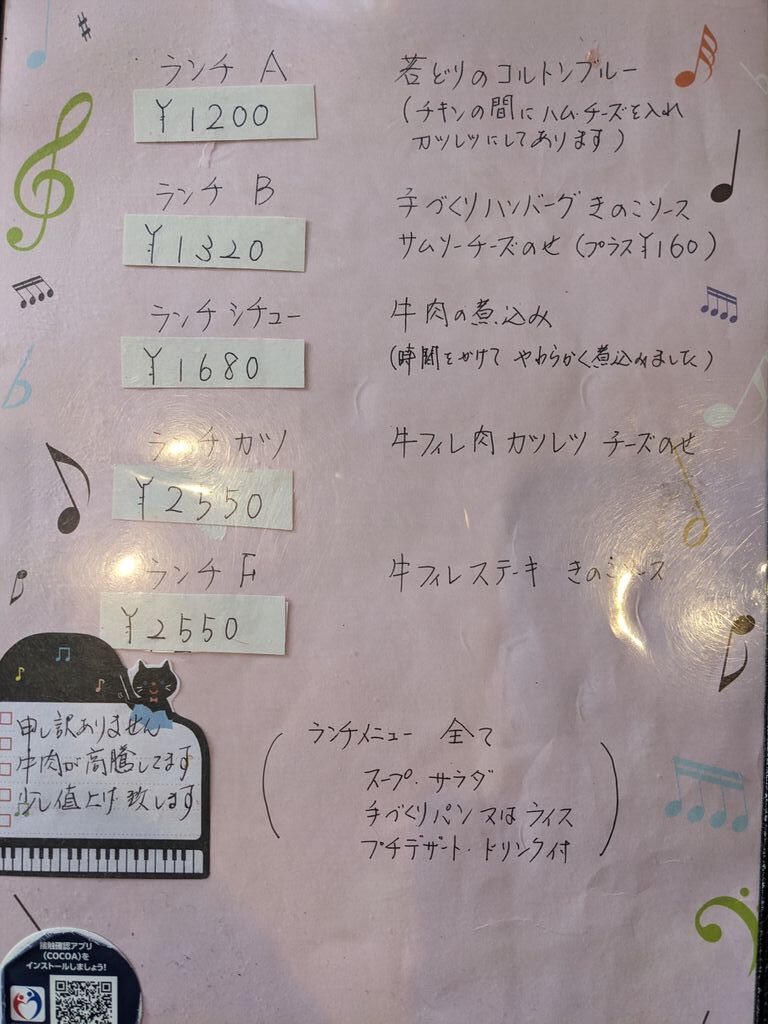 ランチ A
¥1200
若どりのコルトンブルー
(チキンの間にハム・チーズを入れ
カツレツにしてあります)
ランチ B
¥1320
手づくりハンバーグ きのこソース
サムソーチーズのせ (プラス¥160)
ランチシチュー
¥1680
牛肉の煮込み
(時間をかけて やわらかく煮込みました)
ランチ カツ
¥2550
牛フィレ肉 カツレツ チーズのせ
ランチ F
¥2550
牛フィレステーキ きのこソース
申し訳ありません
牛肉が高騰してます
少し値上げ致します
ランチメニュー 全て
スープ・サラダ
手づくりパン又はライス
プチデザート・ドリンク付
接触確認アプリ
(COCOA)を
インストールしましょう!